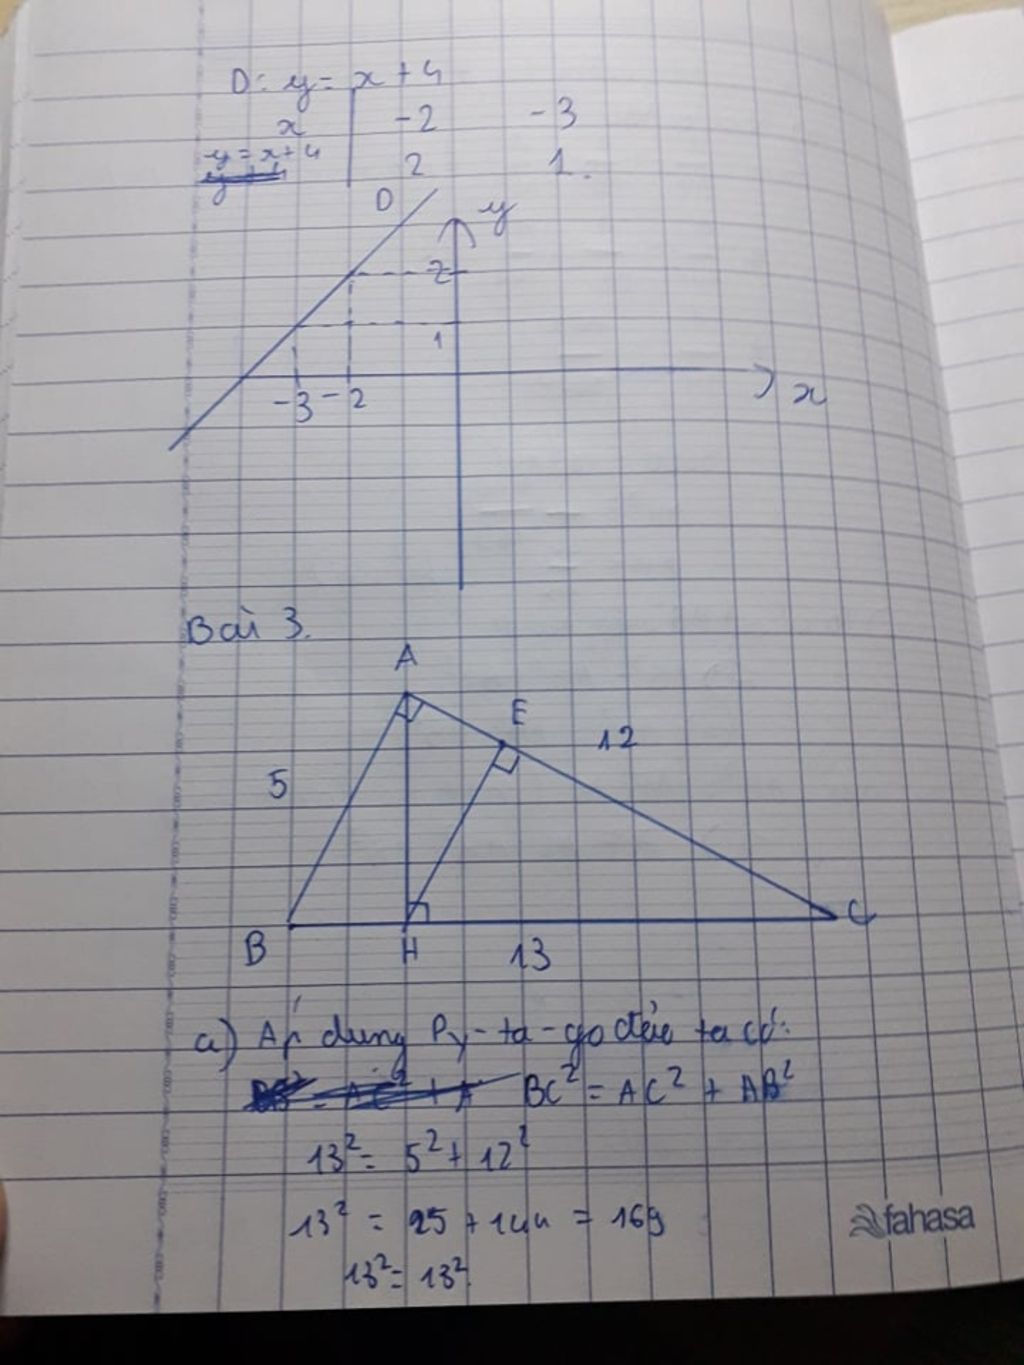 D: y = x + 4
x -2 -3
y = x + 4 2 1.
D y
2
1
-3 -2 x
Bài 3.
A
E
12
5
B H 13 C
a) Áp dụng Py-ta-go đảo ta có:
BC² = AC² + AB²
13² = 5² + 12²
13² = 25 + 144 = 169
13² = 13²
fahasa